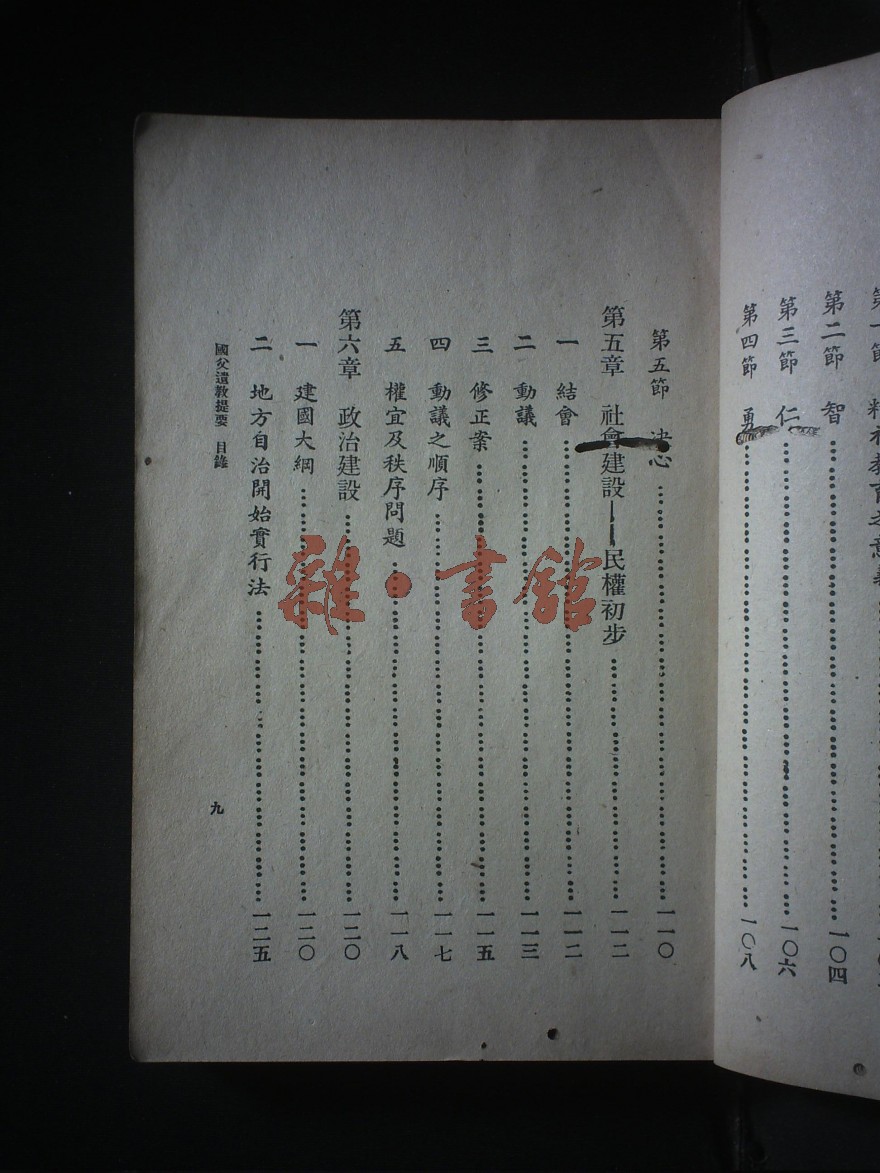 精神教育之意義
第二節 智……一〇四
第三節 仁……一〇六
第四節 勇……一〇八
第五節 決心……一一〇
第五章 社會建設——民權初步……一一二
一 結會……一一二
二 動議……一一三
三 修正案……一一五
四 動議之順序……一一七
五 權宜及秩序問題……一一八
第六章 政治建設……一二〇
一 建國大綱……一二〇
二 地方自治開始實行法……一二五
國父遺教提要 目錄
九
雜·書館